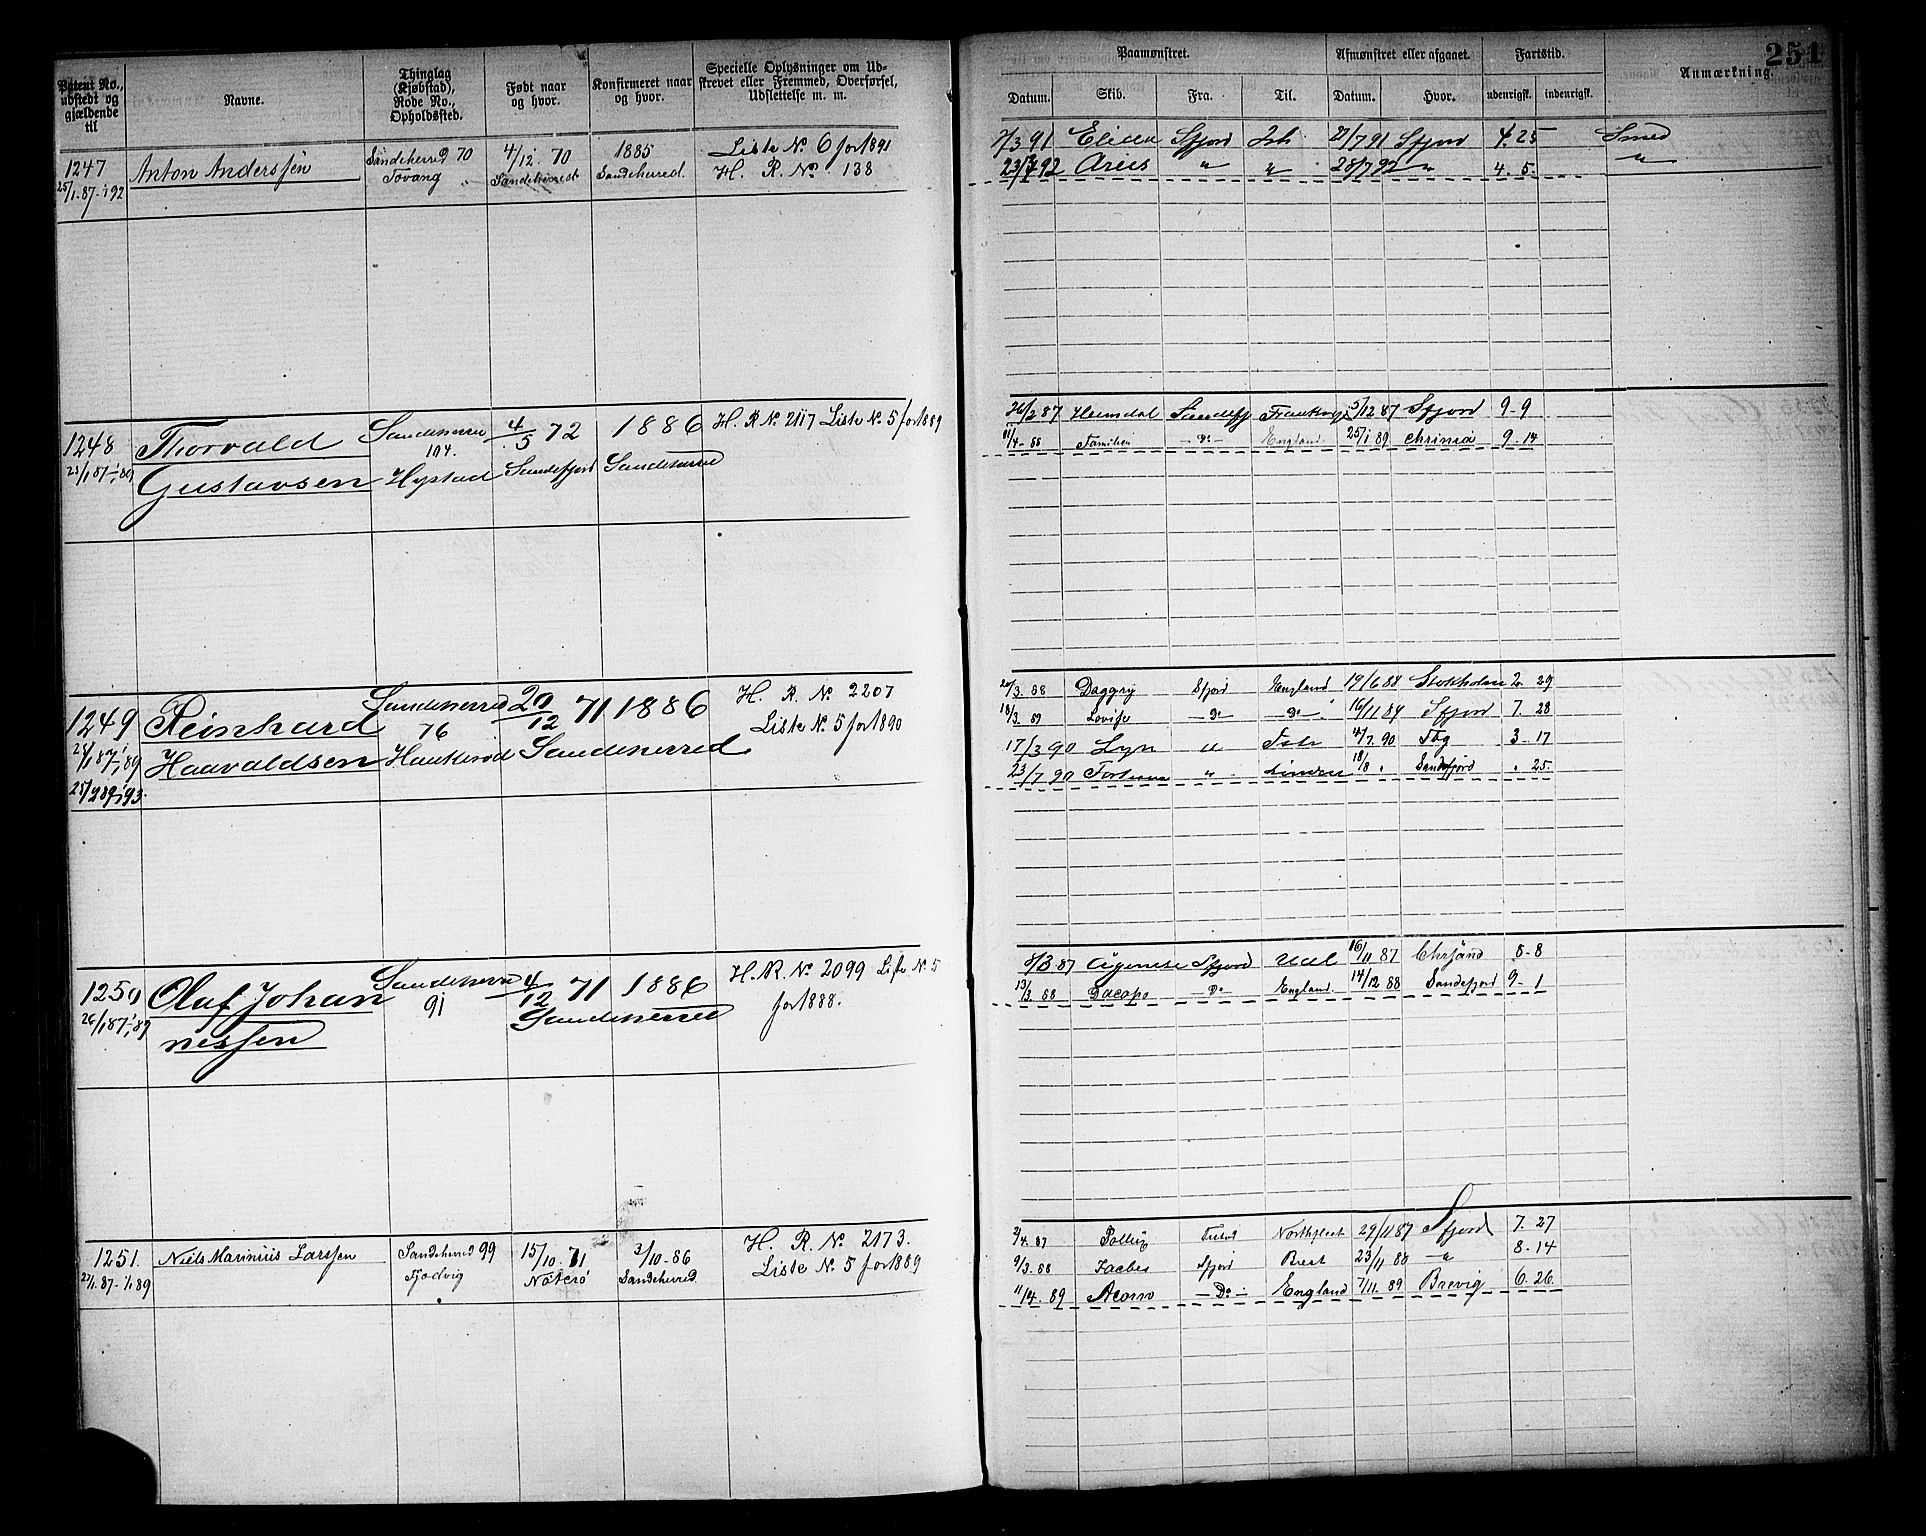 Patent No., udstedt og gjældende til
Navne.
Thinglag (Kjøbstad), Rode No., Opholdssted.
Født naar og hvor.
Konfirmeret naar og hvor.
Specielle Oplysninger om Udskrevet eller Fremmed, Overførsel, Udslettelse m. m.
Paamønstret.
Afmønstret eller afgaaet.
Fartstid.
Anmærkning.
251
Datum. Skib. Fra. Til. Datum. Hvor. udenrigsk. indenrigsk.
1247 Anton Anderssen Sandeherred 70 4/12. 70 1885 Liste No 6 for 1891
25/1.87-1/1 92 Tovang " Sandeherred Sandeherred. H. R. No 138
/3 91 Elida Sfjord Ish 21/7 91 Sfjord 4. 25 Smed
92 " " 28/7 92 " 4. 5. "
1248 Thorvald Sandeherred 4/5 72 1886 H. R No 2117 Liste No. 5 for 1889
104.
Gustavsen Hystad Sandefjord Sandeherred
26/2 87 Heimdal Sandefj 5/12 87 Sfjord 9-9
11/4-88 Familien -Do- England 25/1 89 Chrinia 9-14
1249 Reinhard Sandeherred 20/12 71 1886 H. R. No 2207
76 Liste No. 5 for 1890
Haavaldsen Haukerød Sandeherred
20/3. 88 Daggry Sfjord England 19/6 88 Stokholm 2. 29
18/3. 89 Lovise -Do- -Do- 16/11 89 Sfjord 7. 28
17/3 90 Lyn " 4/7. 90 Tbg 3-17
23/7 90 Fortuna " 18/8 " Sandefjord " 25
1250 Oluf Johan Sandeherred 4/12 71 1886 H. R. No. 2099 Liste No. 5
91 Sandeherred for 1888.
26/1 87-1/1 89 nessen
/3 87 Sfjord 16/11 87 Chrsand 8-8
13/3 88 Dacapo -Do- England. 14/12 88 Sandefjord 9-1
1251. Niels Marinius Larssen Sandeherred 99 15/10. 71 3/10-86 H. R. No. 2173.
27/1.87-1/1.89 Fjodvig Nøterø Sandeherred. Liste No. 5 for 1889
2/4. 87 Northfleet 29/11 87 Sfjord 7. 27
9/3. 88 Sfjord Brest 23/11 88 -"- 8-14
11/4. 89 -Do- England 7/11. 89 Brevig 6. 26.